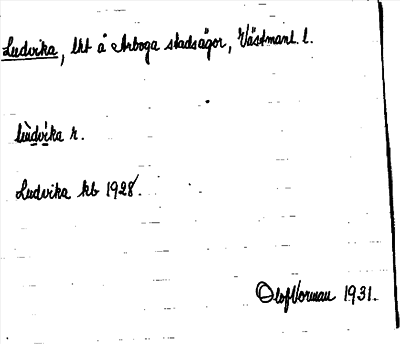 Ludvika, lht å Arboga stadsägor, Västmanl. l.
lùdvika r.
Ludvika kb 1928.
Olof Vorman 1931.